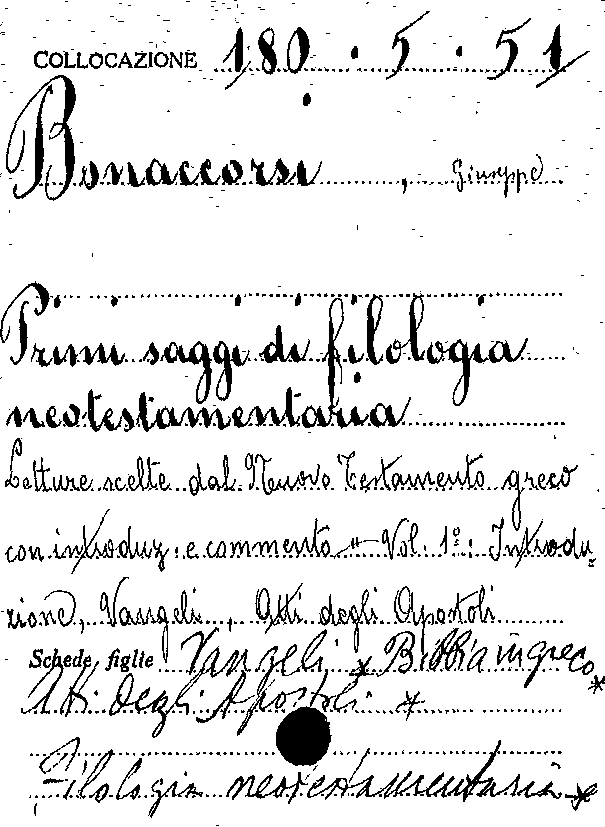 COLLOCAZIONE 180.5.51
Bonaccorsi, Giuseppe
Primi saggi di filologia
neotestamentaria
Letture scelte dal Nuovo Testamento greco
con introduz. e commento - Vol. 1º: Introdu-
zione, Vangeli, Atti degli Apostoli
Schede figlie Vangeli * Bibbia in greco *
Atti degli Apostoli *
Filologia neotestamentaria *